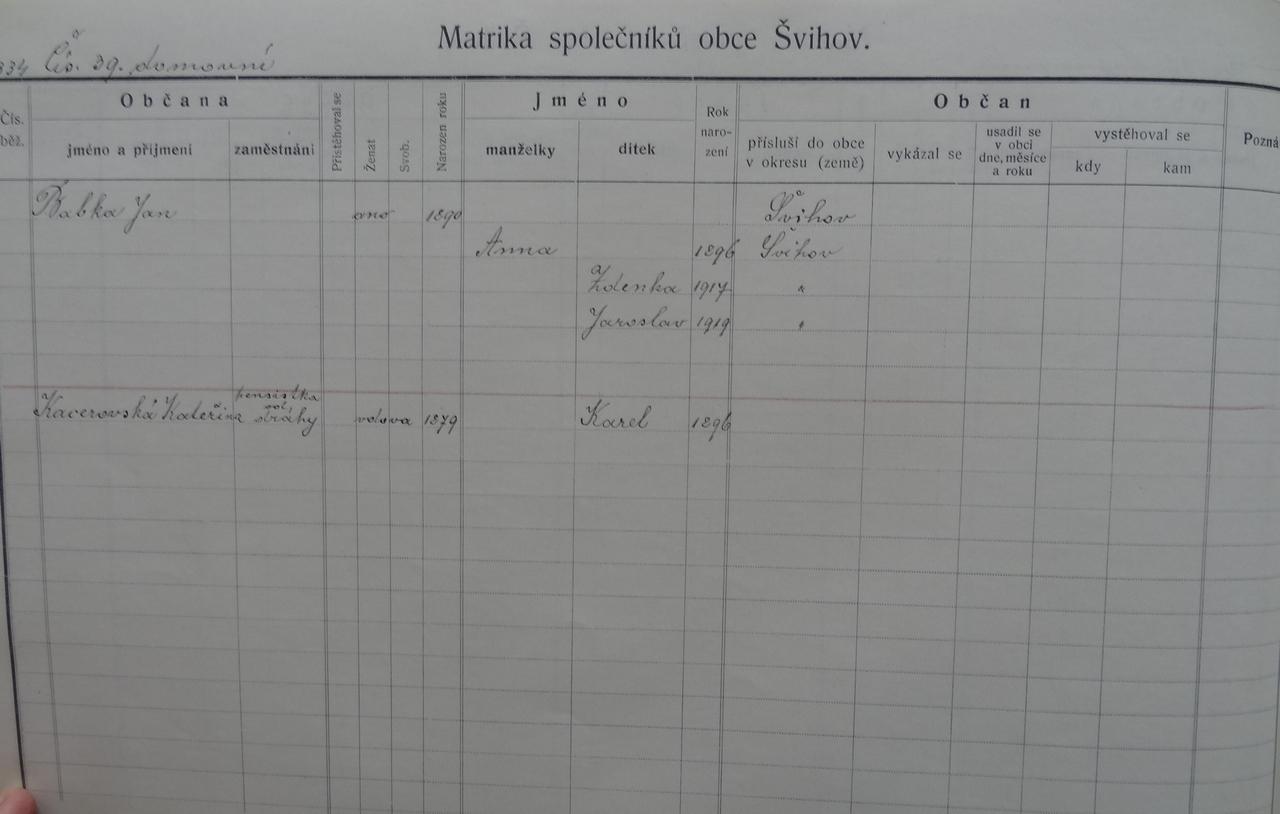 Matrika společníků obce Švihov.
334 Čís. 39. domovní
Čís. běž.
Občana
jméno a příjmení
zaměstnání
Přistěhoval se
Ženat
Svob.
Narozen roku
Jméno
manželky
dítek
Rok naro- zení
Občan
přísluší do obce v okresu (země)
vykázal se
usadil se v obci dne, měsíce a roku
vystěhoval se
kdy
kam
Pozná
Babka Jan ano 1890 Švihov
Anna 1896 Švihov
Zdenka 1917 "
Jaroslav 1919 "
pensistka
Kacerovská Kateřina dráhy vdova 1879 Karel 1896